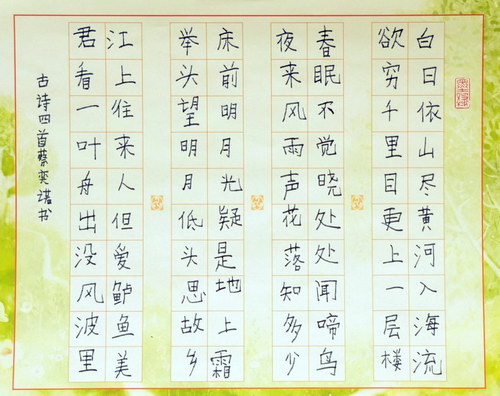 白日依山尽黄河入海流
欲穷千里目更上一层楼
春眠不觉晓处处闻啼鸟
夜来风雨声花落知多少
床前明月光疑是地上霜
举头望明月低头思故乡
江上往来人但爱鲈鱼美
君看一叶舟出没风波里
古诗四首蔡奕诺书